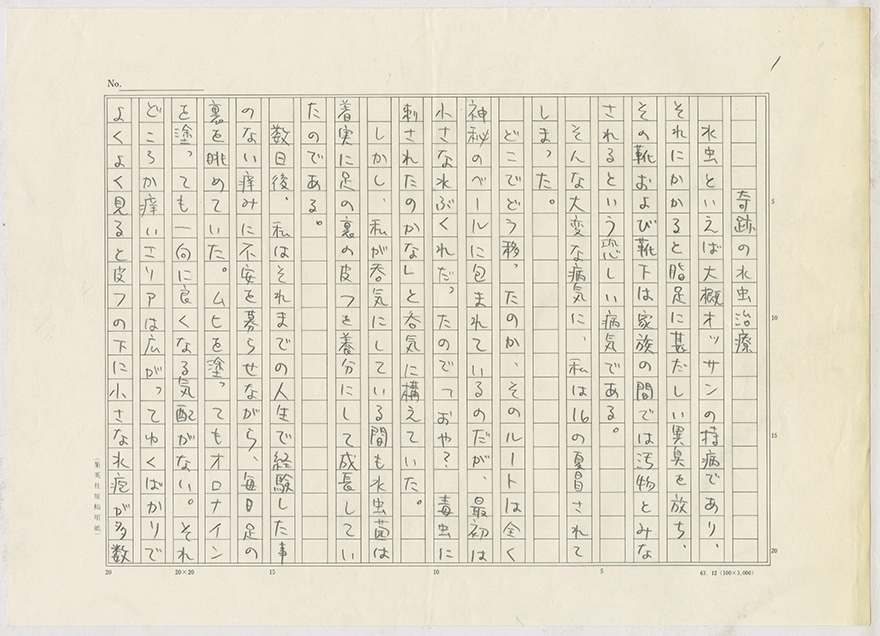 No.
1
奇跡の水虫治療
水虫といえば大概オッサンの持病であり、
それにかかると脂足に甚だしい異臭を放ち、
その靴および靴下は家族の間では汚物とみな
されるという恐しい病気である。
そんな大変な病気に、私は16の夏冒されて
しまった。
どこでどう移ったのか、そのルートは全く
神秘のベールに包まれているのだが、最初は
小さな水ぶくれだったので「おや？毒虫に
刺されたのかな」と呑気に構えていた。
しかし、私が呑気にしている間も水虫菌は
着実に足の裏の皮フを養分にして成長してい
たのである。
数日後、私はそれまでの人生で経験した事
のない痒みに不安を募らせながら、毎日足の
裏を眺めていた。ムヒを塗ってもオロナイン
を塗っても一向に良くなる気配がない。それ
どころか痒いエリアは広がってゆくばかりで
よくよく見ると皮フの下に小さな水疱が多数
5
10
15
20
（集英社原稿用紙）
20
20×20
15
10
5
63. 12 (100×3,000)